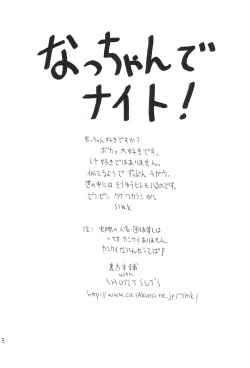 なっちゃんで
ナイト!
なっちゃん好きですか?
ボカァ大好きです。
しチ好きではありません。
似てるようで ずいぶん チガウ。
世の中には そうゆうヒトも いるのです。
ゼンゼン ワケ ワカランガら。
sink
注: 実際の人名・団体書とは
一切 カンケイありません。
カンケイないんだってば!
裏方本舗
with
SHORT CUT'S
http://www.ca.sakura.ne.jp/~sink/
3